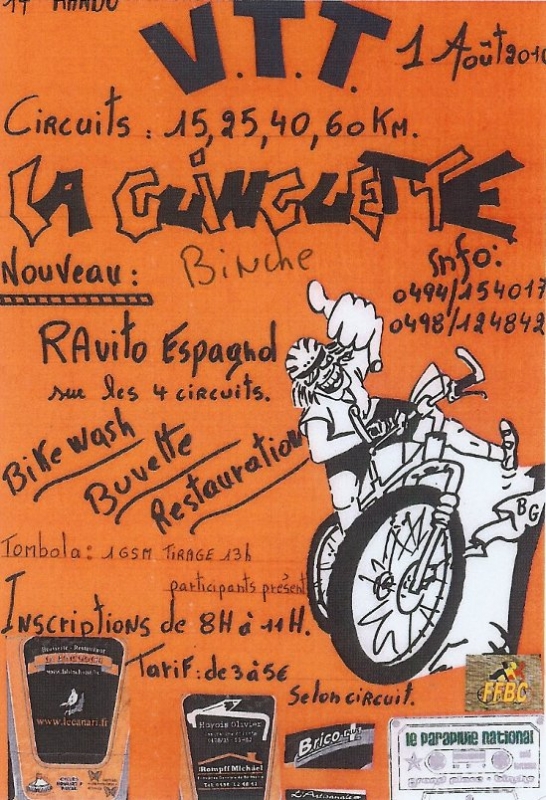 V.T.T.
1 Août 2010
Circuits : 15, 25, 40, 60 Km.
LA GUINGUETTE
Binche
Nouveau :
Info:
0494/154017
0498/124842
RAvito Espagnol
sur les 4 circuits.
Bike wash
Buvette
Restauration
BG
Tombola : 1 GSM TIRAGE 13h
participants présent
Inscriptions de 8H à 11H.
Tarif : de 3 à 5€
Selon circuit.
FFBC
Brasserie - Restaurant
www.lecanari.fr
Hayois Olivier
Rompff Michaël
Brico
L'Artisanale
le parapluie national